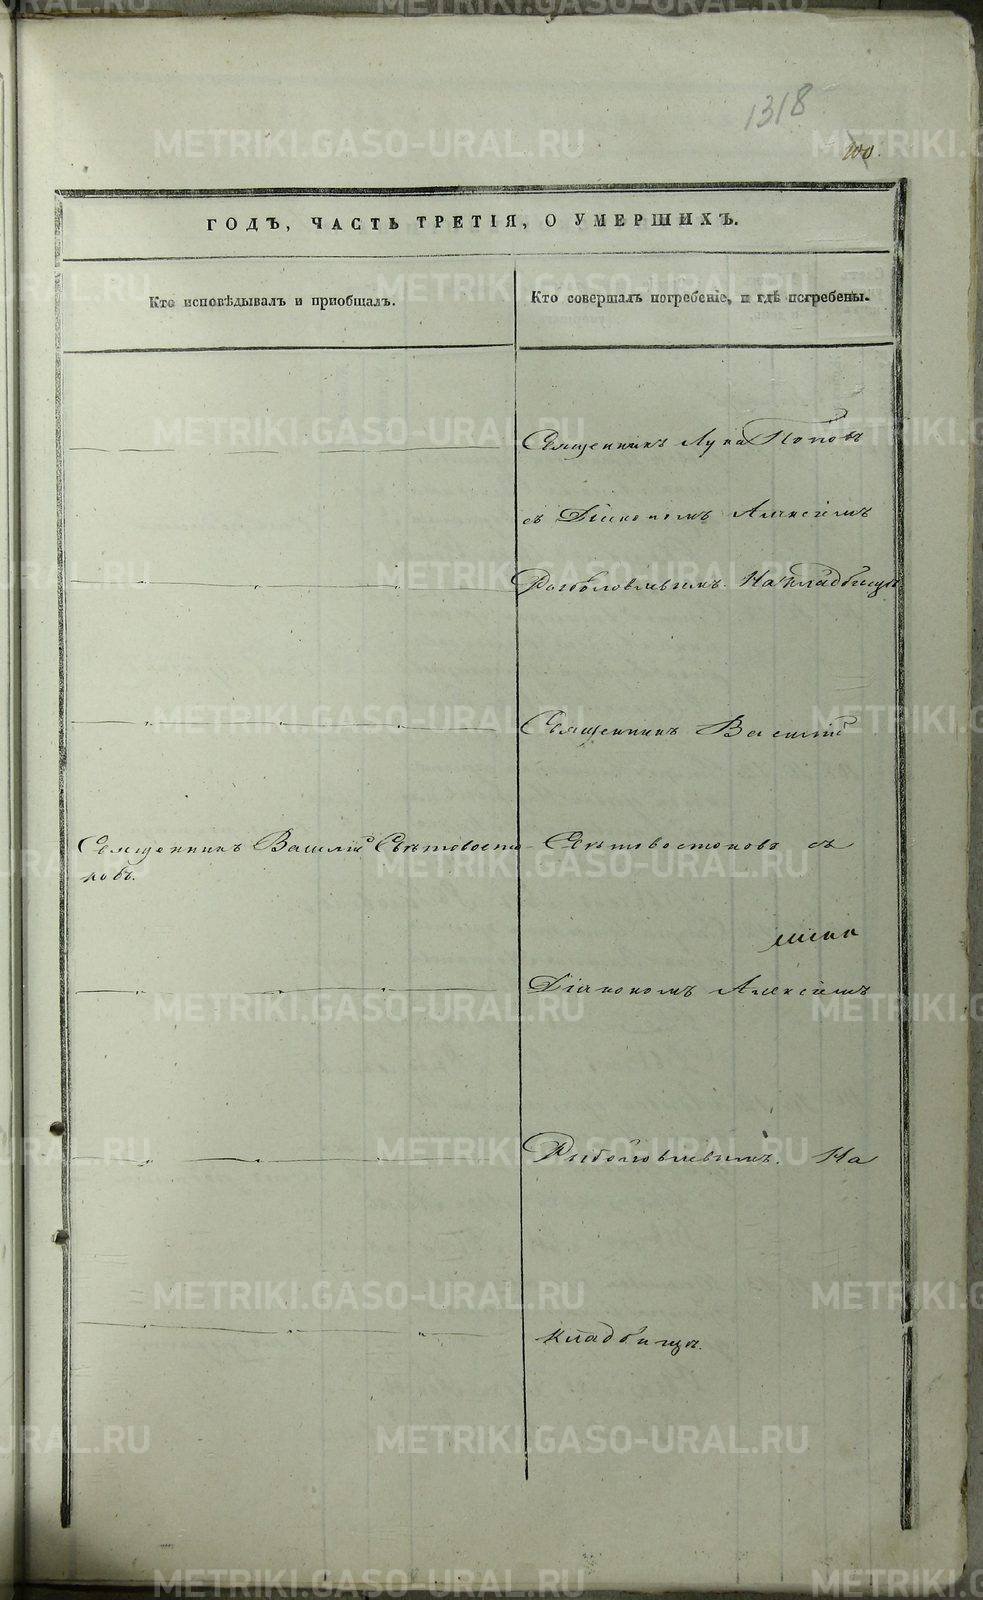 1318
100.
ГОДЪ, ЧАСТЬ ТРЕТІЯ, О УМЕРШИХЪ.
Кто исповѣдывалъ и приобщалъ.
Кто совершалъ погребеніе, и гдѣ погребены.
Священникъ Лука Поповъ
съ Діакономъ Алексіемъ
Рыболовлевымъ. На кладбищѣ
Священникъ Василій
Священникъ Василій Свѣтовосто
ковъ.
Свѣтовостоковъ съ
Діакономъ Алексіемъ
Рыболовлевымъ. На
кладбищѣ.
METRIKI.GASO-URAL.RU